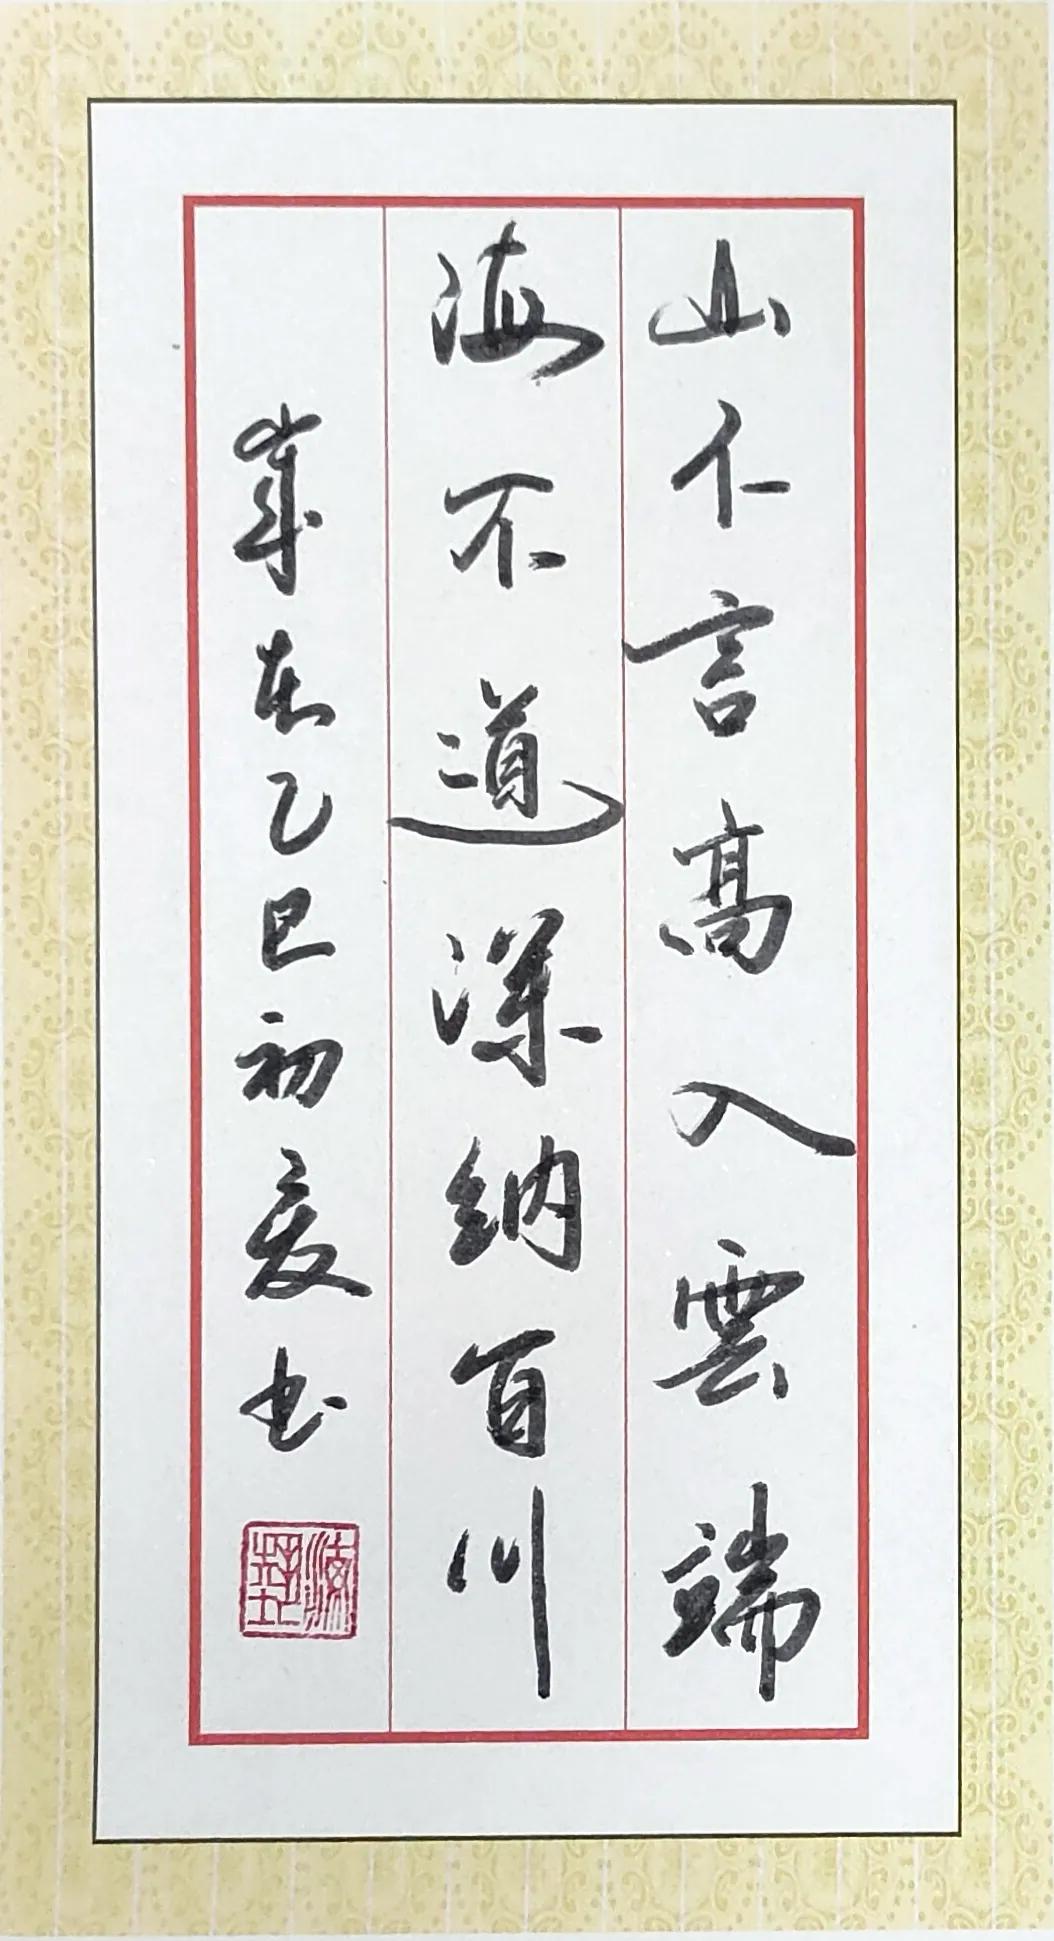 山不言高入雲端
海不道深納百川
歲在乙巳初夏书